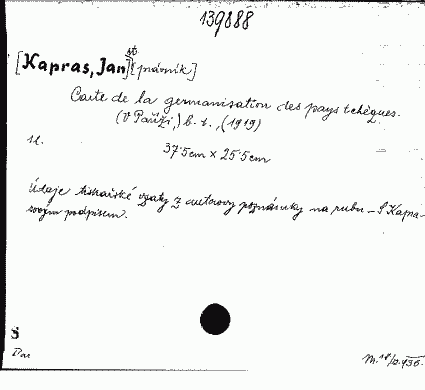 139888
[Kapras, Jan] st [právník]
Carte de la germanisation des pays tchèques.
(V Paříži,) b. t., (1919)
1 l.
37·5 cm × 25·5 cm
Údaje tiskařské vzaty z autorovy poznámky na rubu – S Kapra-
sovým podpisem.
S
Dar